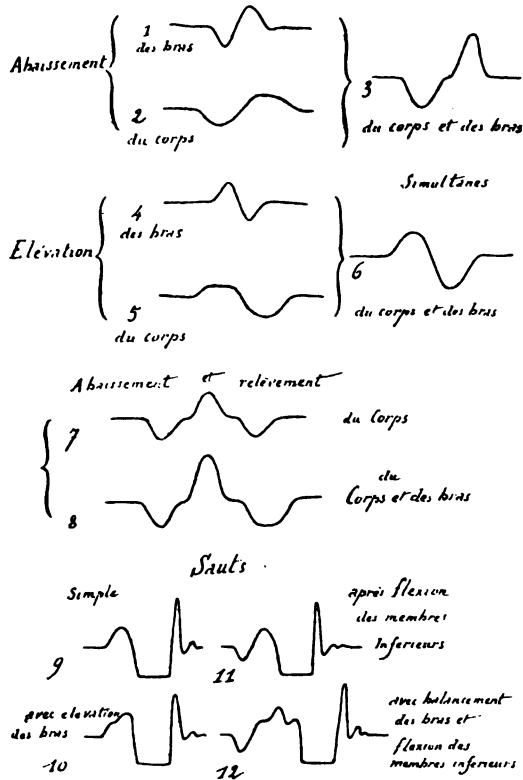 Abaissement
1
des bras
2
du corps
3
du corps et des bras
Simultanés
Elévation
4
des bras
5
du corps
6
du corps et des bras
Abaissement et relèvement
7
du Corps
8
du
Corps et des bras
Sauts
Simple
9
après flexion
des membres
Inferieurs
11
avec elevation
des bras
10
12
avec balancement
des bras et
flexion des
membres inferieurs